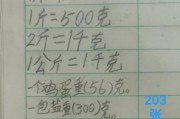 1斤=500克
2斤=1千克
1公斤=1千克
一个鸡蛋重(56)克。
一包盐重(300)克。
203
张